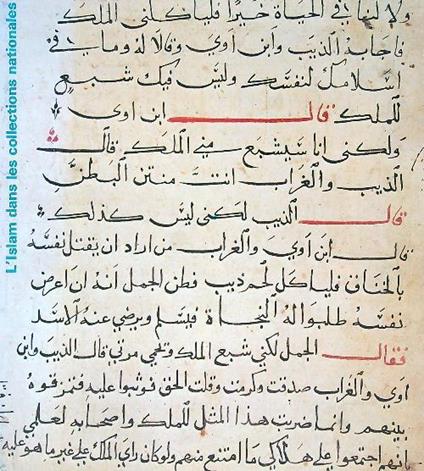 L'Islam dans les collections nationales
ولا لنا في الحياة خيرا فلياكلني الملك
فاجابه الذيب وابن اوي وقالا له وما في
اسلامك لنفسك وليس فيك شبع
للملك قال ابن اوى
ولكنى انا سيشبع مني الملك قال
الذيب والغراب انت منتن البطن
قال الذيب لكنى ليس كذلك
قال ابن اوي والغراب من اراد ان يقتل نفسه
بالخناق فلياكل لحم ذيب فظن الجمل انه ان اعرض
نفسه طلبوا له النجاة فيسلم ويرضي عنه الاسد
فقال الجمل لكني شبع الملك ولحمي مرتي قال الذيب وابن
اوي والغراب صدقت وكرمت وقلت الحق فوثبوا عليه فمزقوه
بينهم وانما ضربت هذا المثل للملك واصحابه لعلمي
بانهم اجتمعوا علي هلاكي ما امتنع منهم ولو كان راي الملك علي غير ما هو عليه